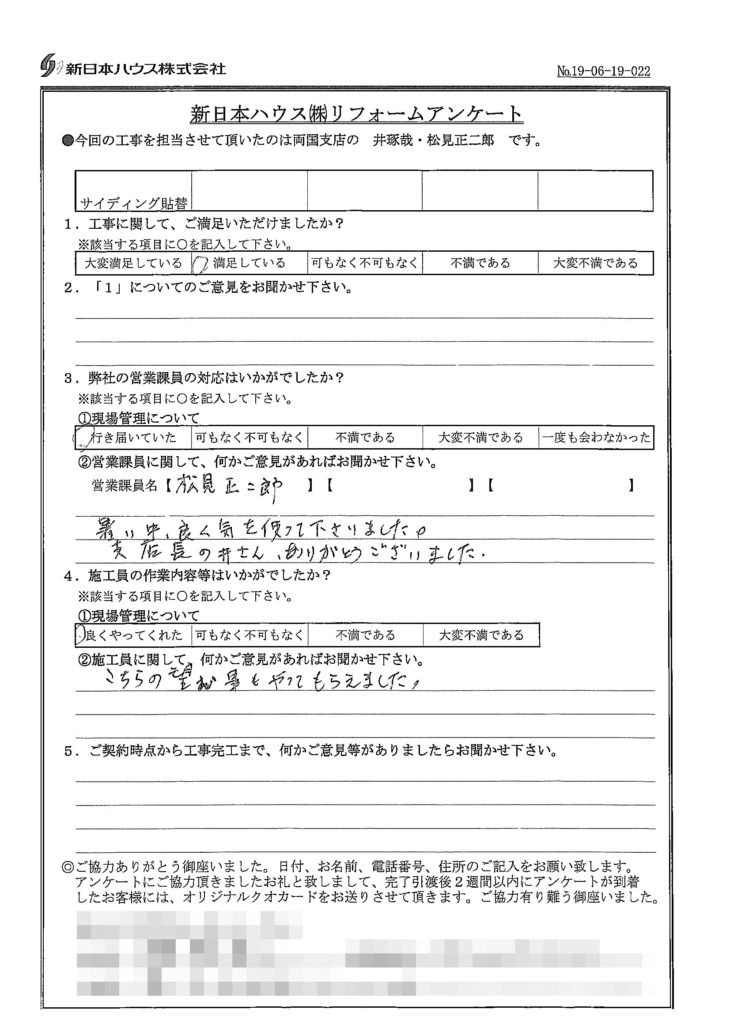 新日本ハウス株式会社
№19-06-19-022
新日本ハウス㈱リフォームアンケート
●今回の工事を担当させて頂いたのは両国支店の 井琢哉・松見正二郎 です。
サイディング貼替
1．工事に関して、ご満足いただけましたか？
※該当する項目に○を記入して下さい。
大変満足している 満足している 可もなく不可もなく 不満である 大変不満である
2．「1」についてのご意見をお聞かせ下さい。
3．弊社の営業課員の対応はいかがでしたか？
※該当する項目に○を記入して下さい。
①現場管理について
行き届いていた 可もなく不可もなく 不満である 大変不満である 一度も会わなかった
②営業課員に関して、何かご意見があればお聞かせ下さい。
営業課員名【 松見正二郎 】【 】【 】
暑い中、良く気を使って下さりました。
支店長の井さん、ありがとうございました.
4．施工員の作業内容等はいかがでしたか？
※該当する項目に○を記入して下さい。
①現場管理について
良くやってくれた 可もなく不可もなく 不満である 大変不満である
②施工員に関して、何かご意見があればお聞かせ下さい。
こちらの望む事をやってもらえました,
5．ご契約時点から工事完工まで、何かご意見等がありましたらお聞かせ下さい。
◎ご協力ありがとう御座いました。日付、お名前、電話番号、住所のご記入をお願い致します。
アンケートにご協力頂きましたお礼と致しまして、完了引渡後2週間以内にアンケートが到着
したお客様には、オリジナルクオカードをお送りさせて頂きます。ご協力有り難う御座いました。